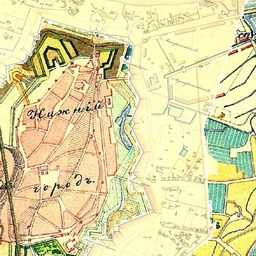 Нижнiй
городъ.